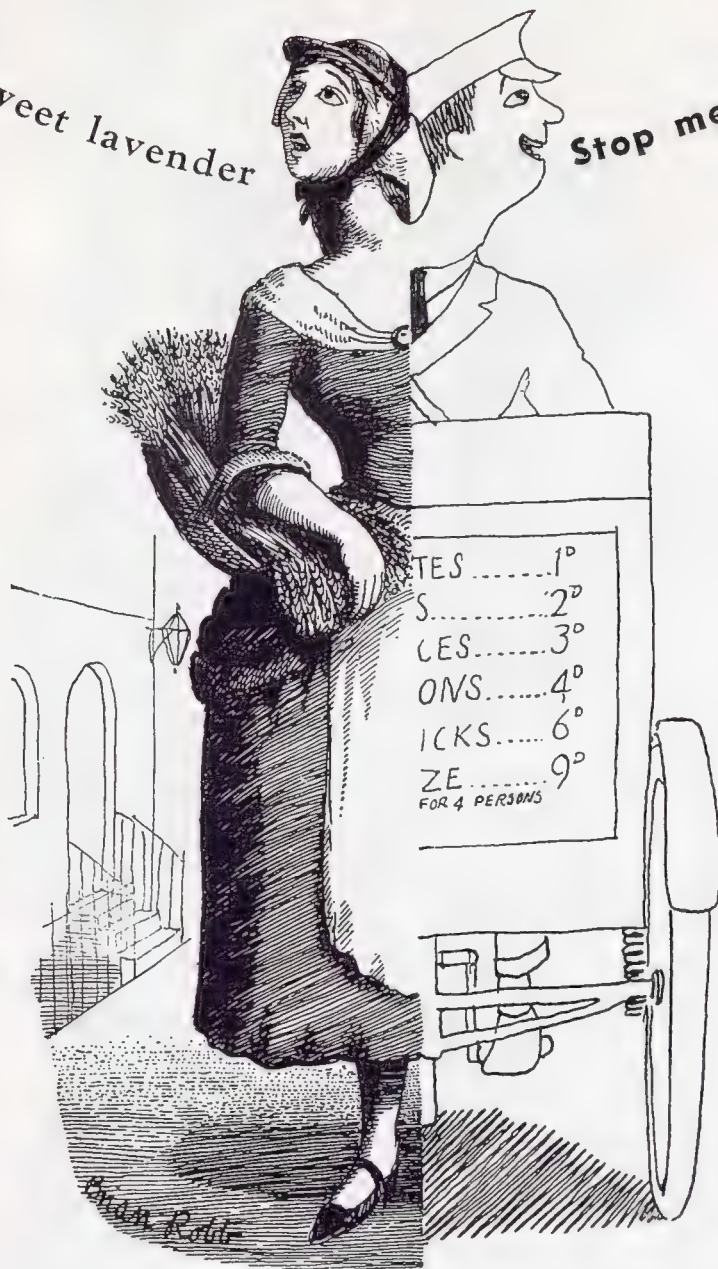 weet lavender
Stop me
TES.......1ᴰ
S..........2ᴰ
CES.......3ᴰ
ONS.......4ᴰ
ICKS......6ᴰ
ZE........9ᴰ
FOR 4 PERSONS
Brian Robb